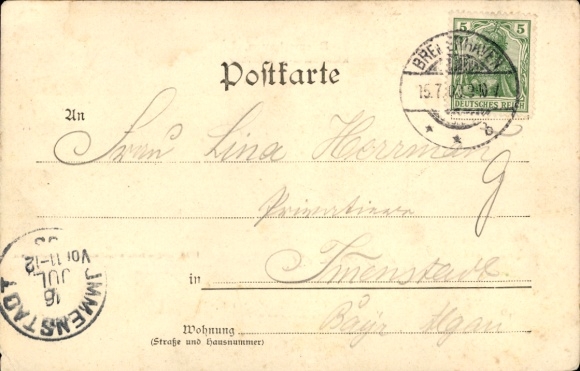 5 5
DEUTSCHES REICH
BREMERHAVEN
15.7.
Postkarte
An
Frau Lina Herrmann
Privatiere
in Immenstadt
Bayr. Algau
Wohnung
(Straße und Hausnummer)
IMMENSTADT
16
JUL
Vor 11-12